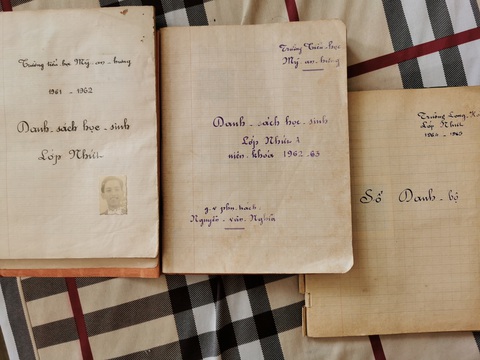 Trường tiểu học Mỹ-an-hưng
1961 - 1962
Danh-sách học-sinh
Lớp Nhứt
Trường Tiểu-học
Mỹ-an-hưng
Danh-sách học-sinh
Lớp Nhứt
niên-khóa 1962-63
g.v phụ-trách
Nguyễn-văn-Nghĩa
Trường Long
Lớp Nhứt
Sổ Danh-bộ